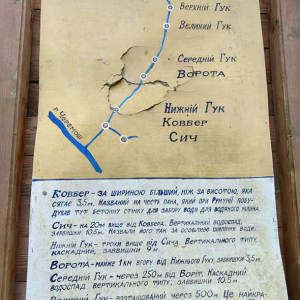 Верхній Гук
Великий Гук
Середній Гук
Ворота
Нижній Гук
Ковбер
Сич
р. Черемош
Ковбер – за шириною більший, ніж за висотою, яка
сягає 3,5м. Названий на честь пана, який при Румунії побу-
дував тут бетонну стінку для забору води для водяного млина.
Сич – на 20м вище від Ковбера. Вертикальний водоспад,
заввишки 10,5м. Назвали його так за особливе шипіння води.
Нижній Гук – трохи вище від Сича. Вертикального типу,
каскадний, заввишки 9м.
Ворота – майже 1км вгору від Нижнього Гуку, заввишки 3,5м.
Середній Гук – через 250м від Воріт. Каскадний
водоспад вертикального типу, заввишки 10,5м.
Великий Гук – розташований через 500м. Це найкра-